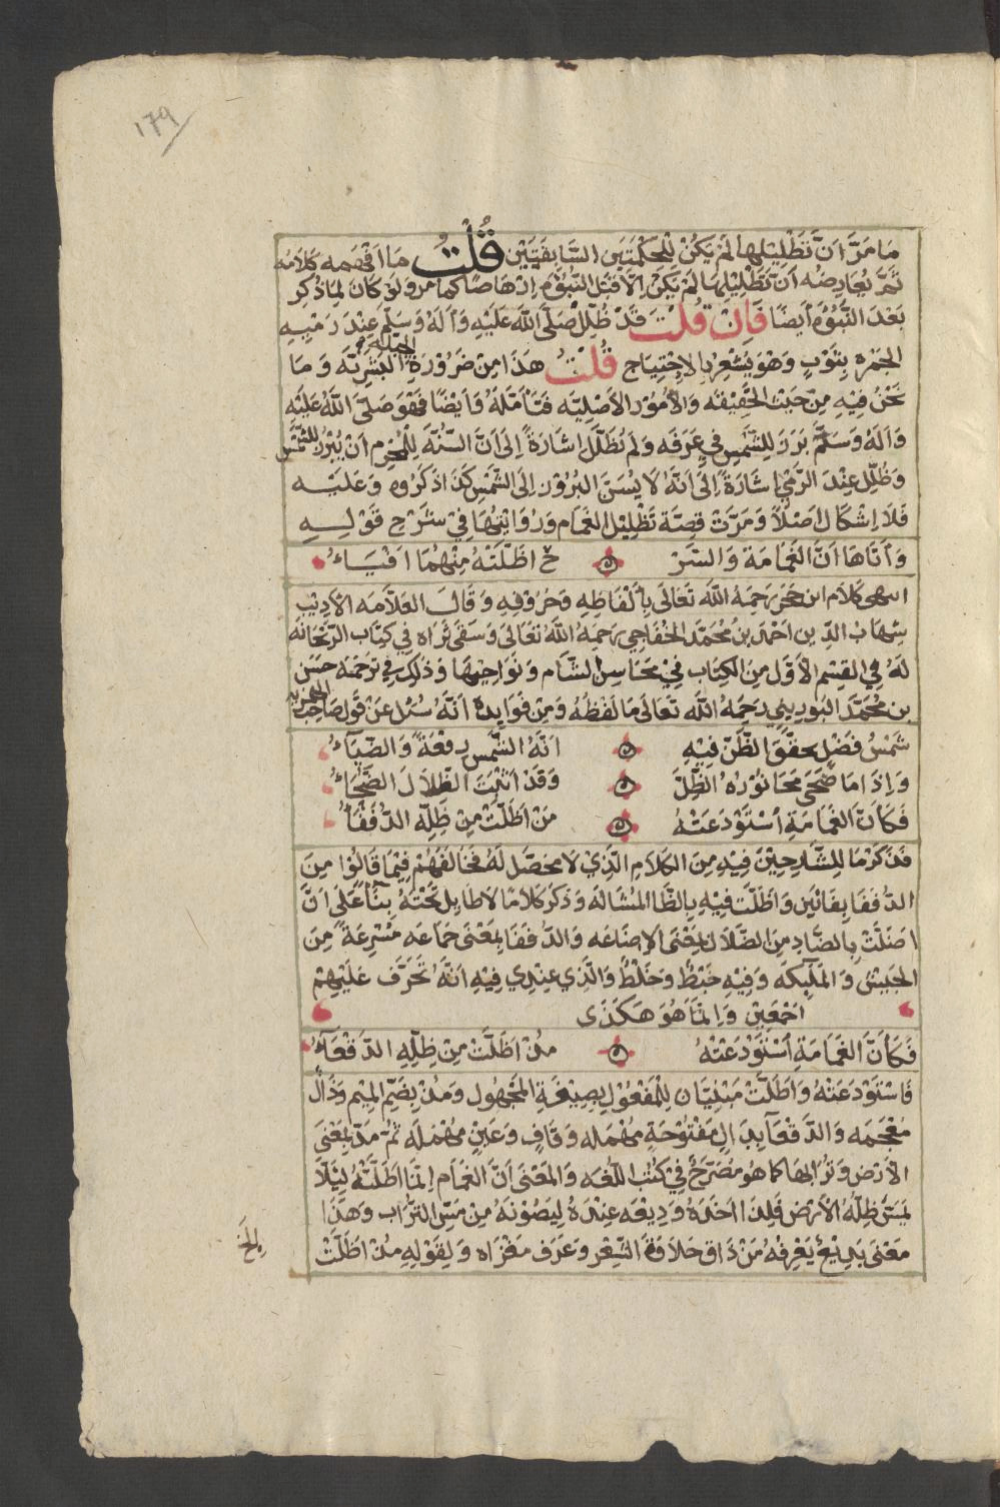 ١٧٩
ما مر ان تظليلها لم يكن للحكمتين السابقتين قلت ما افهمه كلامه
ثم يعارضه ان تظليلها لم يكن الا قبل النبوة ارهاصا كما مر ولو كان لما ذكر
بعد النبوة ايضا فان قلت قد ظلل صلى الله عليه وآله وسلم عند رميه
الجمرة بثوب وهو يشعر بالاحتياج قلت هذا من ضرورة الجبلة البشرية وما
نحن فيه من حيث الحقيقة والامور الاصلية فتأمله وايضا فهو صلى الله عليه
وآله وسلم برز للشمس في عرفه ولم يظلل اشارة الى ان السنة للمحرم ان يبرز للشمس
وظلل عند الرمي اشارة الى انه لا يسن البروز الى الشمس كذا ذكروه وعليه
فلا اشكال اصلا ومرت قصة تظليل الغمام وروايتها في شرح قوله
وأتاها ان الغمامة والسر ح اظلته منهما افياء
انتهى كلام ابن حجر رحمه الله تعالى بألفاظه وحروفه وقال العلامه الأديب
شهاب الدين احمد بن محمد الخفاجي رحمه الله تعالى وسقى ثراه في كتاب الريحانه
له في القسم الأول من الكتاب في محاسن الشام ونواحيها وذلك في ترجمة حسن
بن محمد البوريني رحمه الله تعالى ما لفظه ومن فوايده انه سئل عن قول صاحب الهمزيه
شمس فضل تحقق الظن فيه انه الشمس رفعة والضياء
واذا ما ضحى محا نوره الظل وقد اثبت الظلال الضحاء
فكأن الغمامة استودعته من اظلت من ظله الدففاء
فذكر ما للشارحين فيه من الكلام الذي لا محصل له فخالفهم فيما قالوا من
الدففا بفائين واظلت فيه بالظا المشاله وذكر كلاما لا طايل تحته بناء على ان
اضلت بالضاد من الضلال بمعنى الاضاعه والدففا بمعنى جماعه مسرعة من
الجيش والملائكه وفيه خبط وخلط والذي عندي فيه انه تحرف عليهم
اجمعين وانما هو هكذى
فكأن الغمامة استودعته مذ اظلت من ظله الدقعاء
فاستودعته واظلت مبنيان للمفعول بصيغة المجهول ومذ بضم الميم وذال
معجمه والدقعا بدال مفتوحة مهمله وقاف وعين مهمله ثم مد بمعنى
الأرض وترابها كما هو مصرح في كتب اللغه والمعنى ان الغمام انما اظلته ليلا
يمس ظله الأرض فلذا اخذه وديعه عنده ليصونه من مس التراب وهذا
معنى بديع يعرفه من ذاق حلاوة الشعر وعرف مغزاه ولقوله مذ اظلت